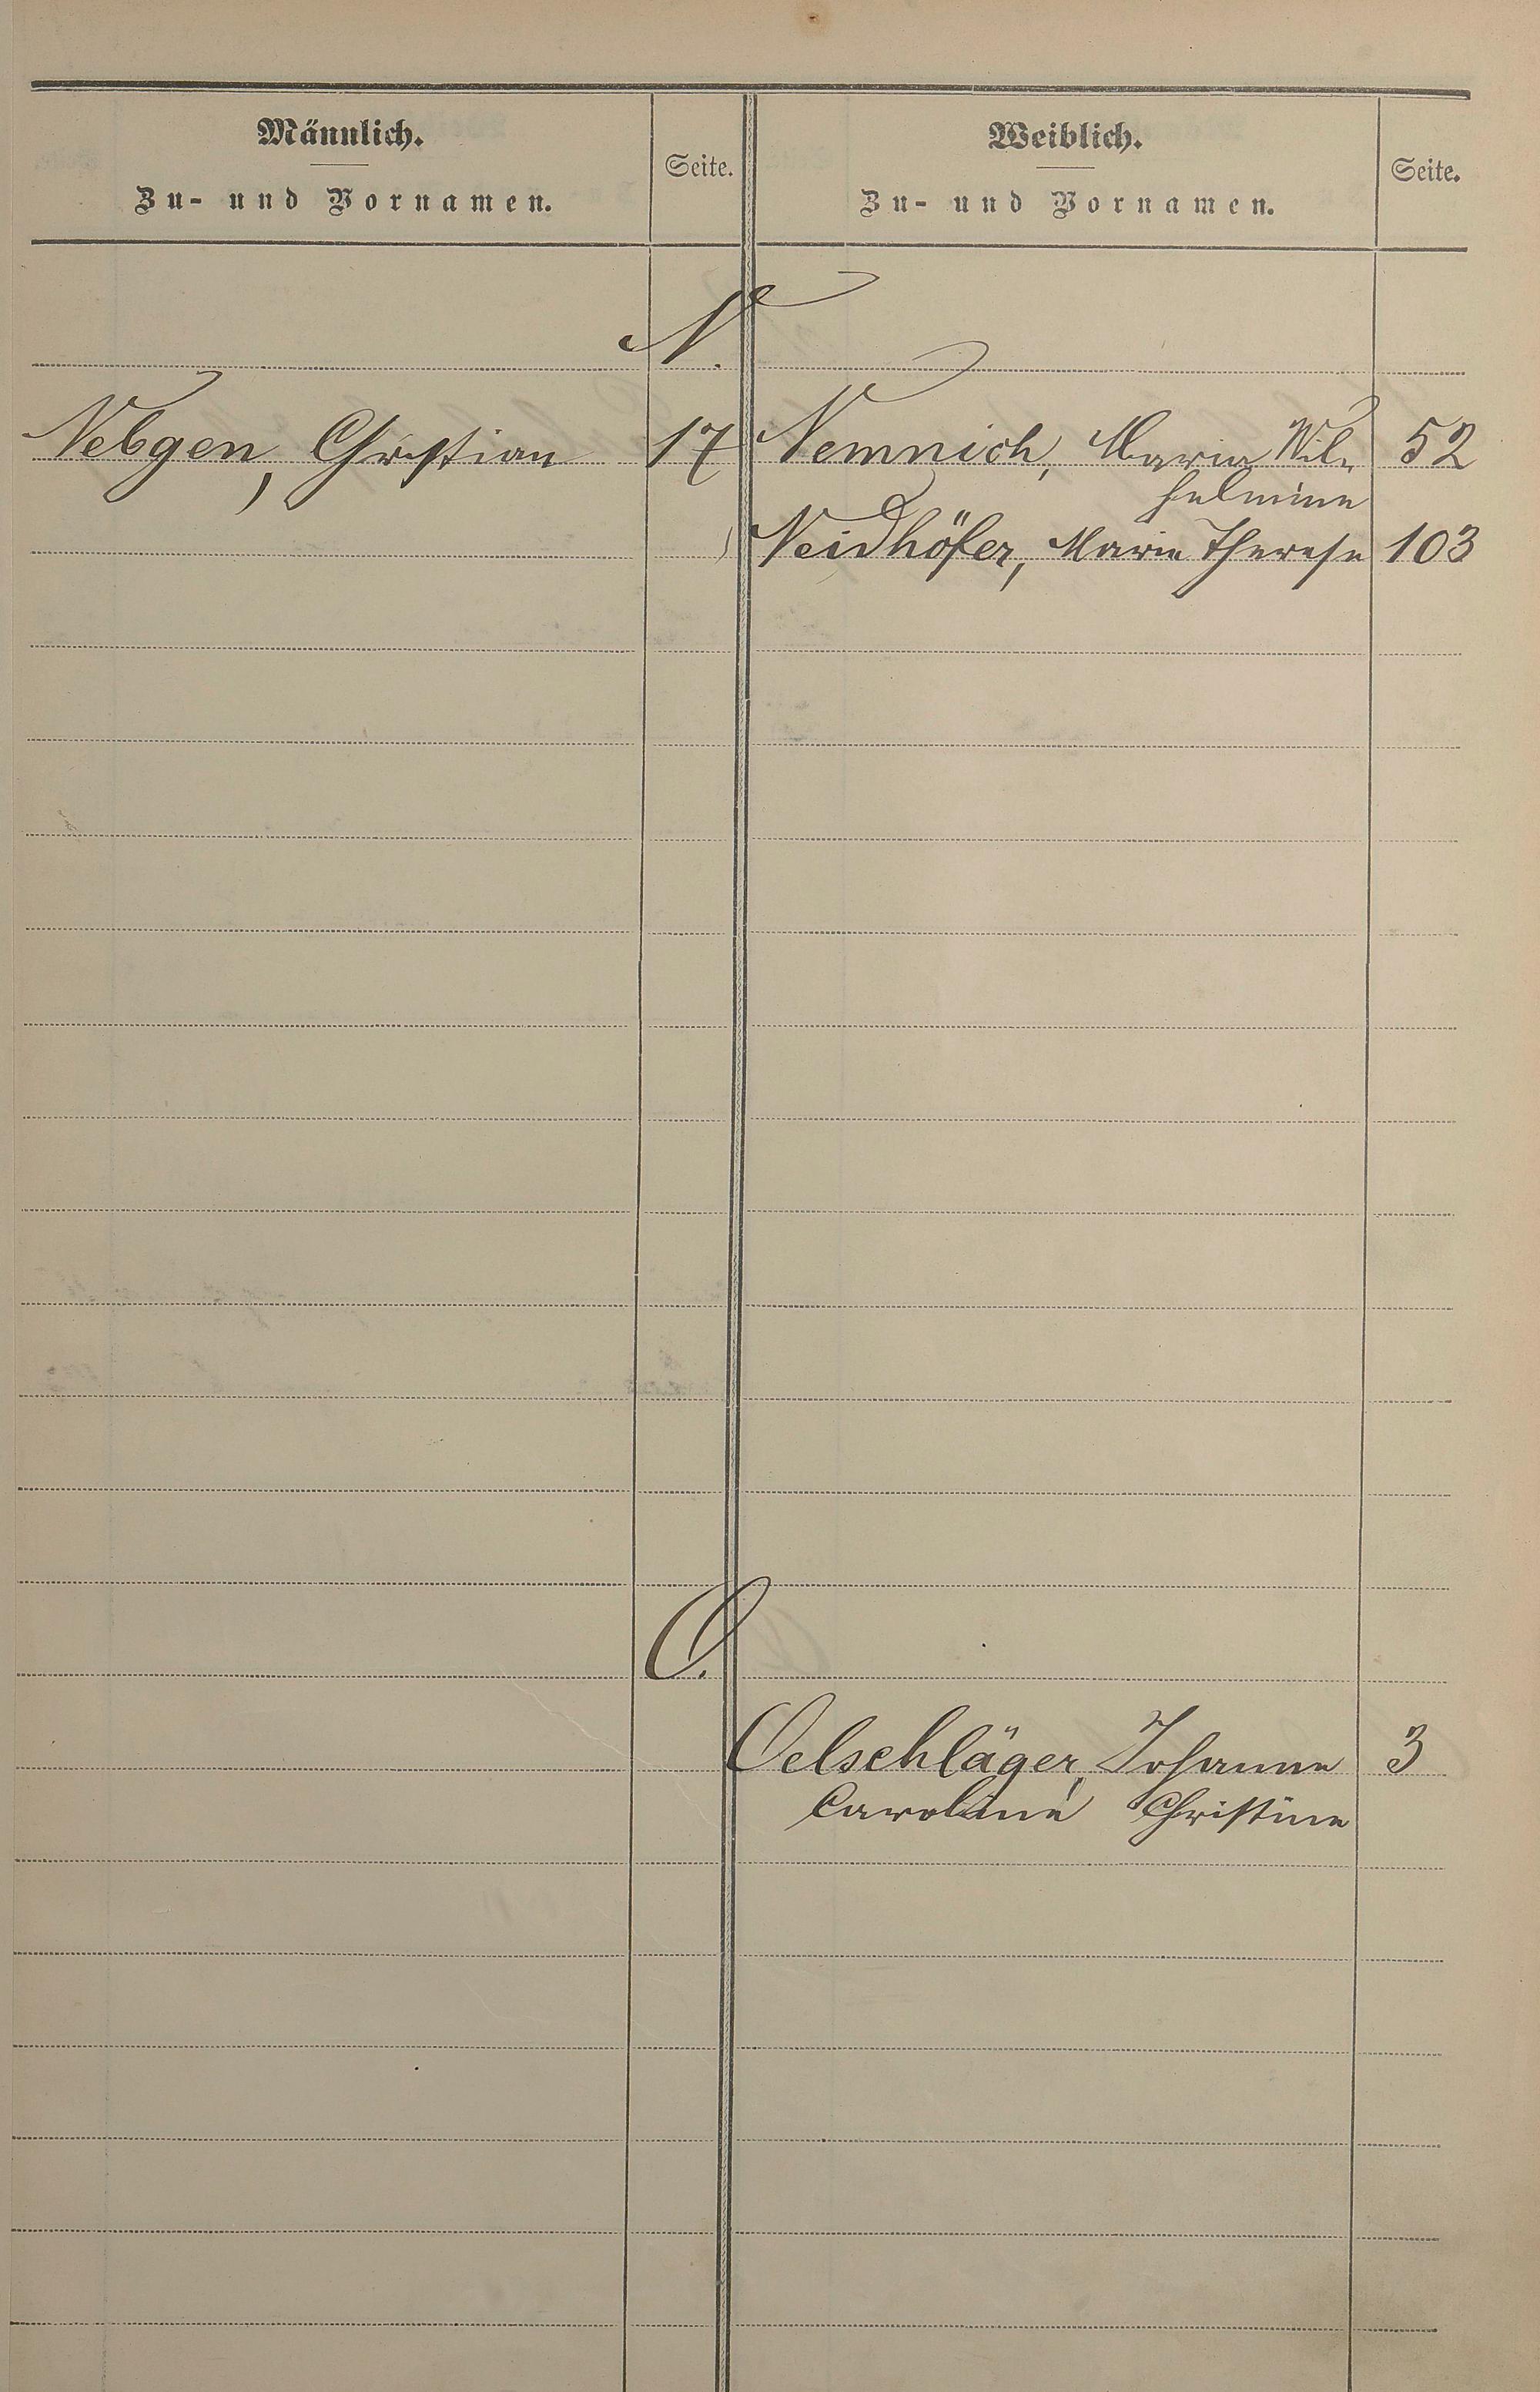 Männlich.
Zu- und Vornamen.
Seite.
Weiblich.
Zu- und Vornamen.
Seite.
N.
Nebgen, Christian 17
Nemnich, Maria Wil-
helmine 52
Neidhöfer, Marie Therese 103
O.
Oelschläger, Johanne 3
Caroline Christine